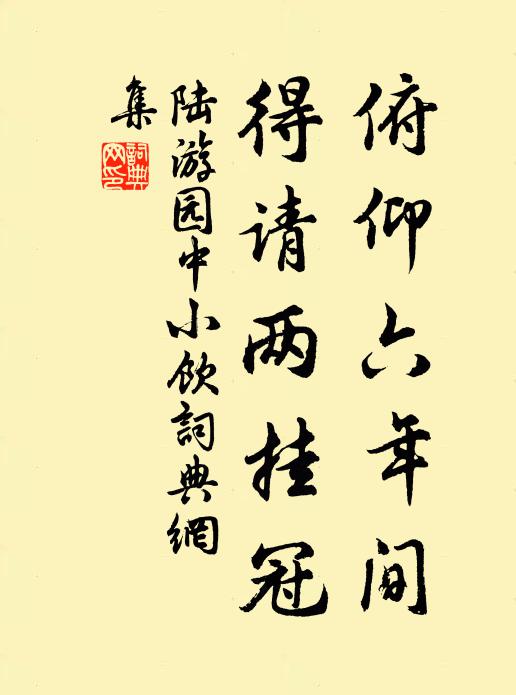 俯仰六年间
得请两挂冠
陆游园中小饮詞典網
集
詞典
网印